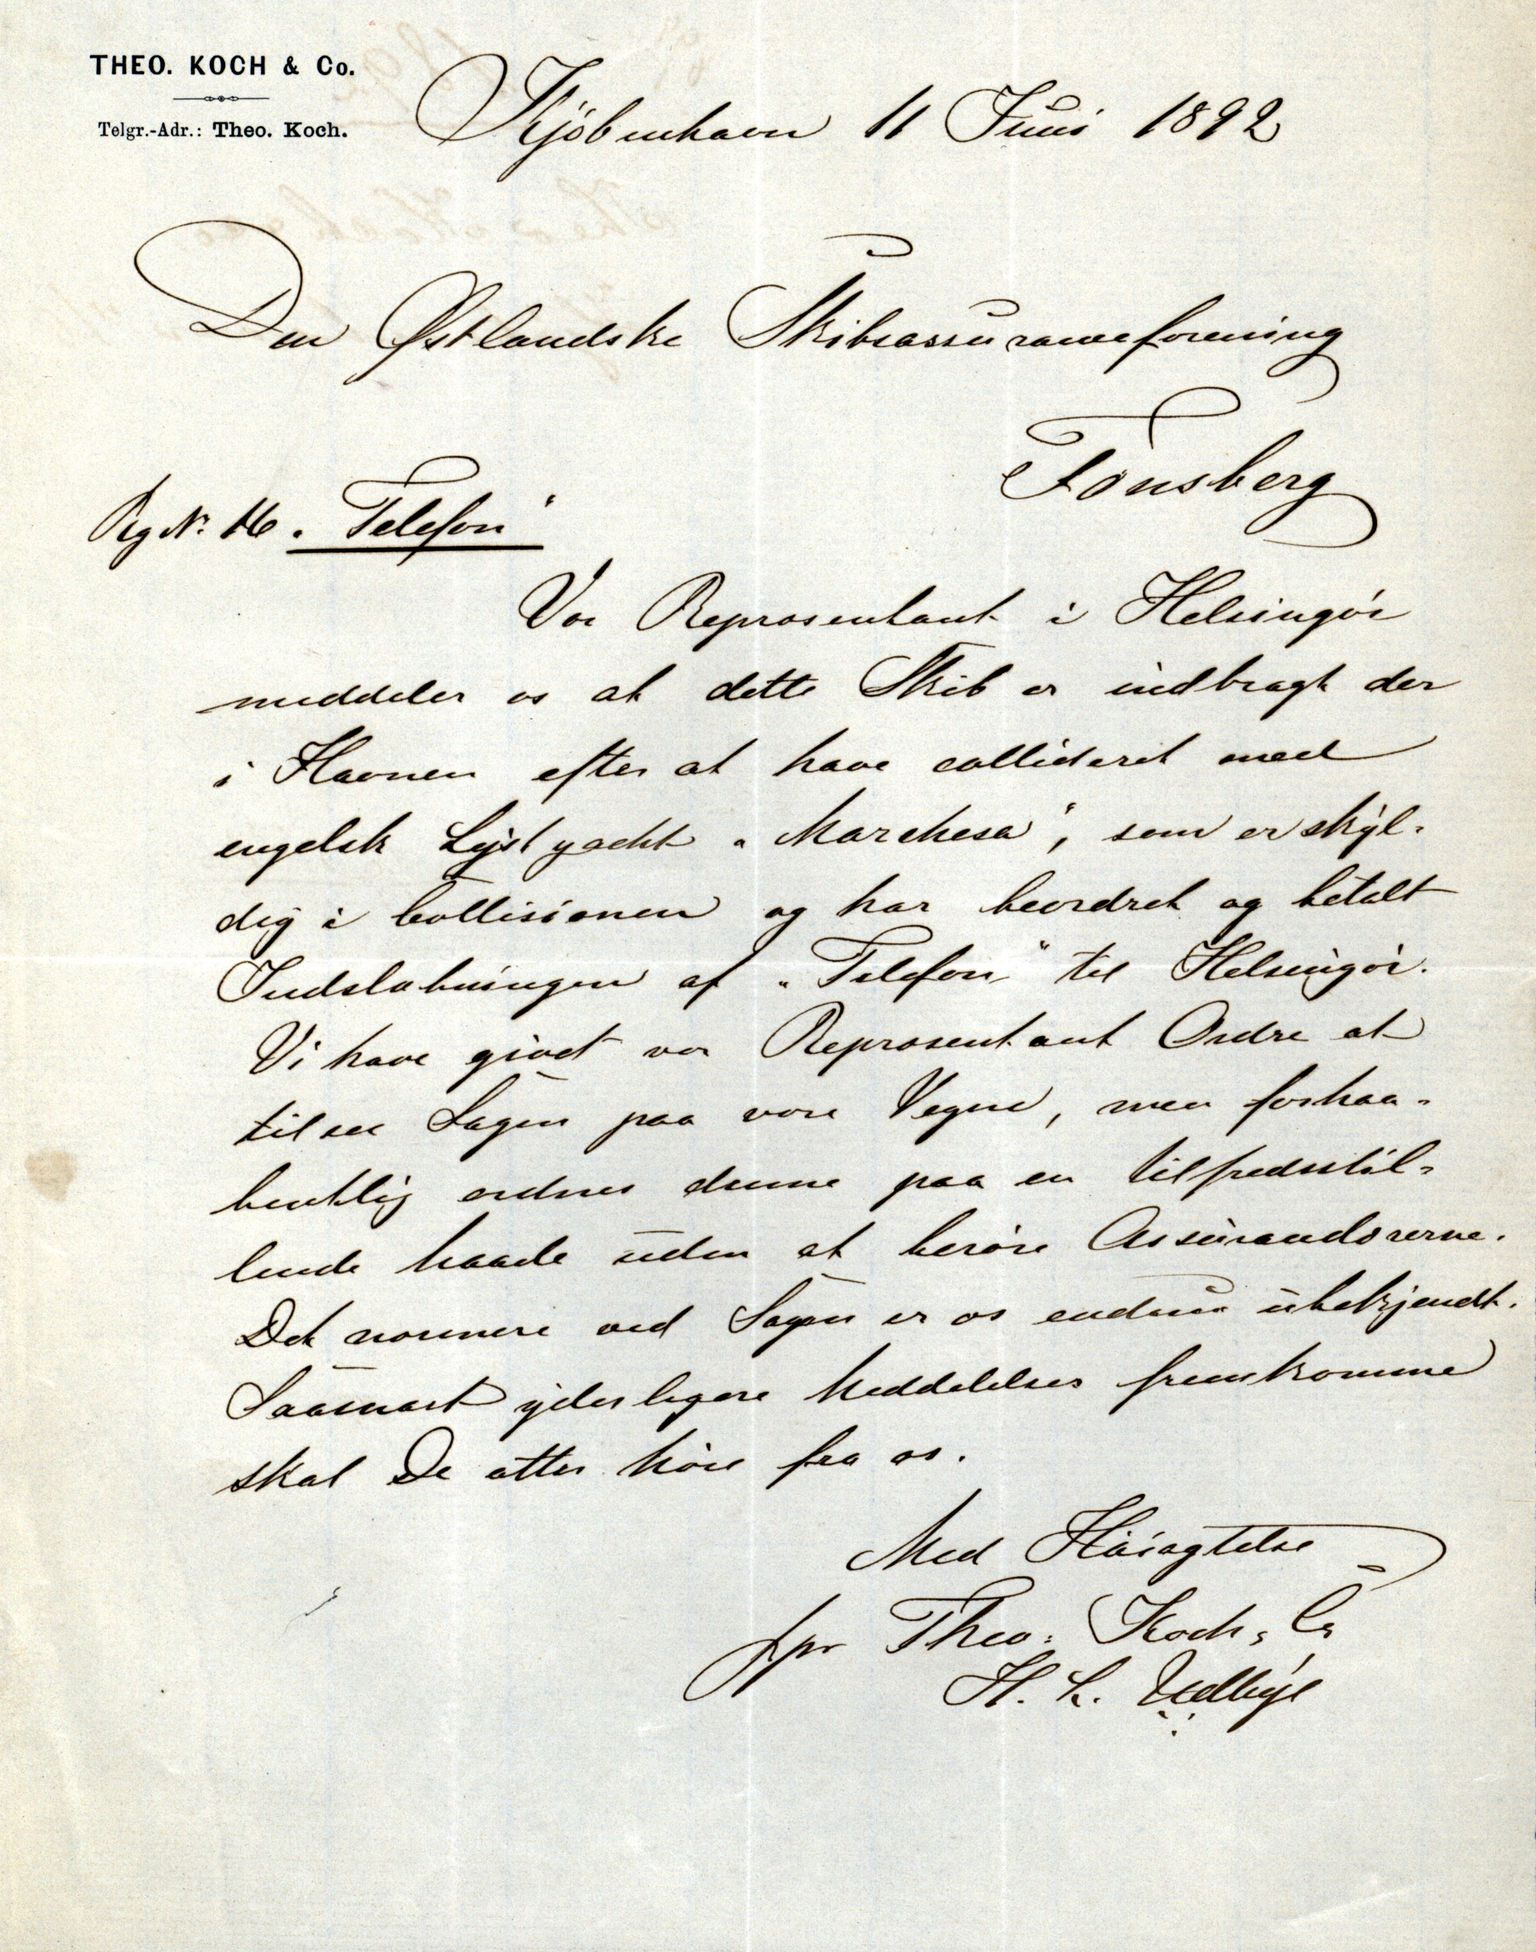 THEO. KOCH & Co.
Telgr.-Adr.: Theo. Koch.
Kjøbenhavn 11 Juni 1892
Den Østlandske Skibsassuranceforening
Tønsberg
Reg No. 16 „Telefon“
Vor Repræsentant i Helsingør
meddeler os at dette Skib er indbragt der
i Havnen efter at have collideret med
engelsk Lystyacht „Marchesa“, som er skyl-
dig i Collisionen og har beordret og betalt
Indslæbningen af „Telefon“ til Helsingør.
Vi have givet vor Repræsentant Ordre at
tilsee Sagen paa vore Vegne, men forhaa-
bentlig ordnes denne paa en tilfredsstil-
lende Maade uden at berøre Assurandørerne.
Det nærmere ved Sagen er os endnu ubekjendt.
Saasnart yderligere Meddelelser fremkomme
skal De atter høre fra os.
Med Høiagtelse
ppr Theo. Koch & Co
H. L. Udbye